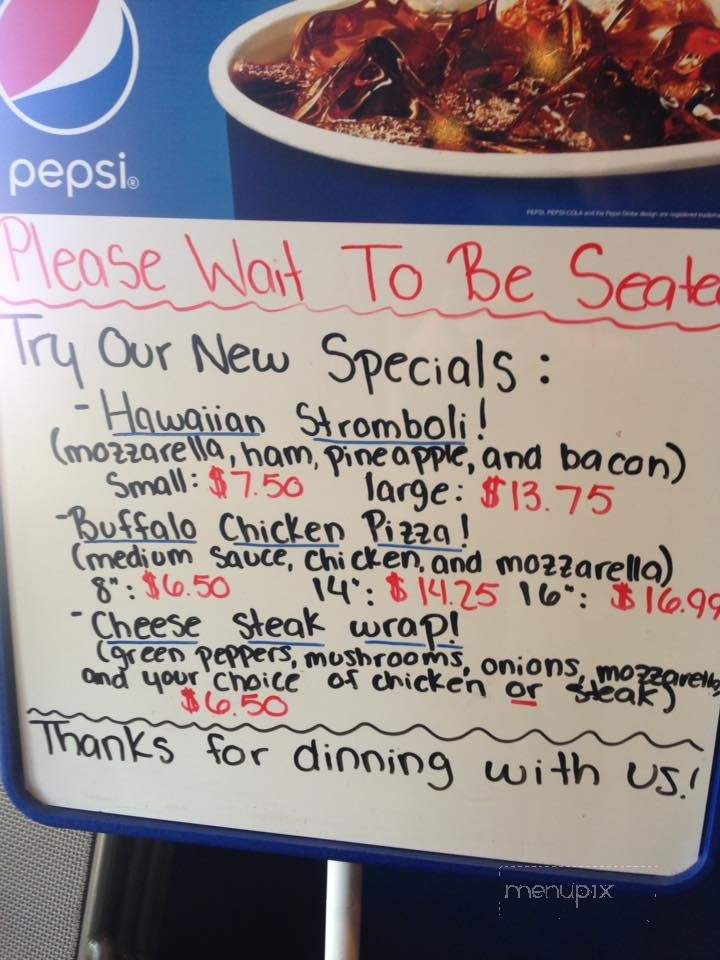 pepsi®
PEPSI, PEPSI-COLA and the Pepsi Globe design are registered
Please Wait To Be Seate
Try Our New Specials:
- Hawaiian Stromboli!
(mozzarella, ham, pineapple, and bacon)
Small: $7.50 large: $13.75
- Buffalo Chicken Pizza!
(medium sauce, chicken, and mozzarella)
8": $6.50 14": $14.25 16": $16.99
- Cheese steak wrap!
(green peppers, mushrooms, onions, mozzarella
and your choice of chicken or steak)
$6.50
Thanks for dinning with us!
menupix